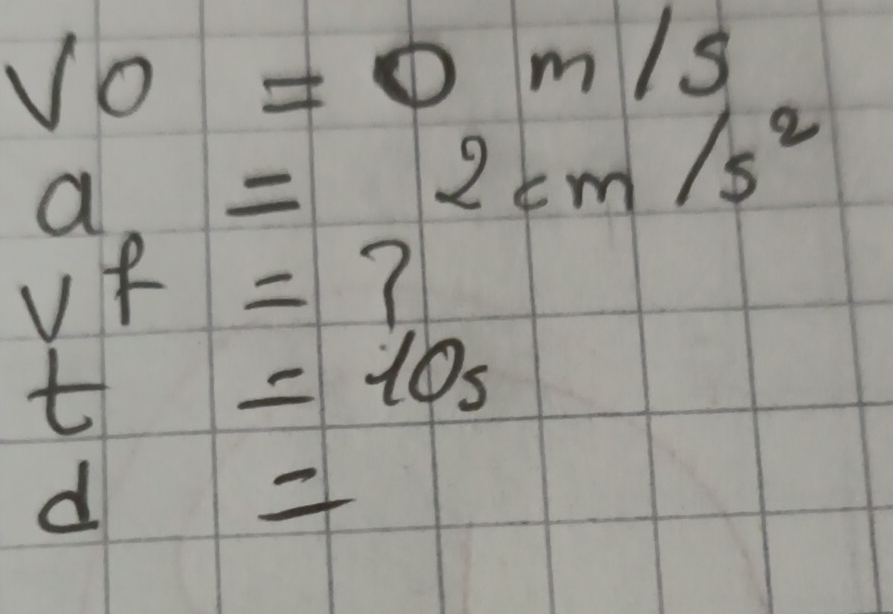 Vo = 0 m/s
a = 2 cm/s²
vf = ?
t = 10s
d =